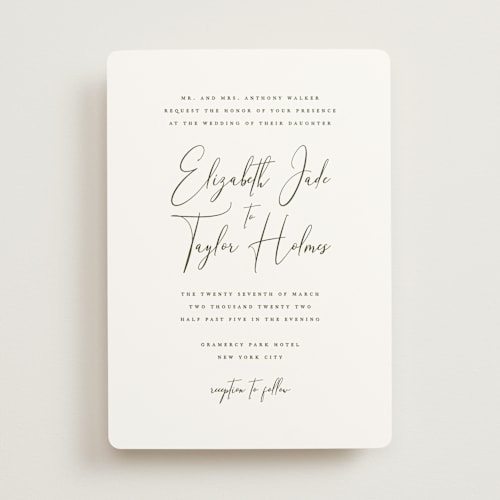 MR. AND MRS. ANTHONY WALKER
REQUEST THE HONOR OF YOUR PRESENCE
AT THE WEDDING OF THEIR DAUGHTER
Elizabeth Jade
to
Taylor Holmes
THE TWENTY SEVENTH OF MARCH
TWO THOUSAND TWENTY TWO
HALF PAST FIVE IN THE EVENING
GRAMERCY PARK HOTEL
NEW YORK CITY
reception to follow